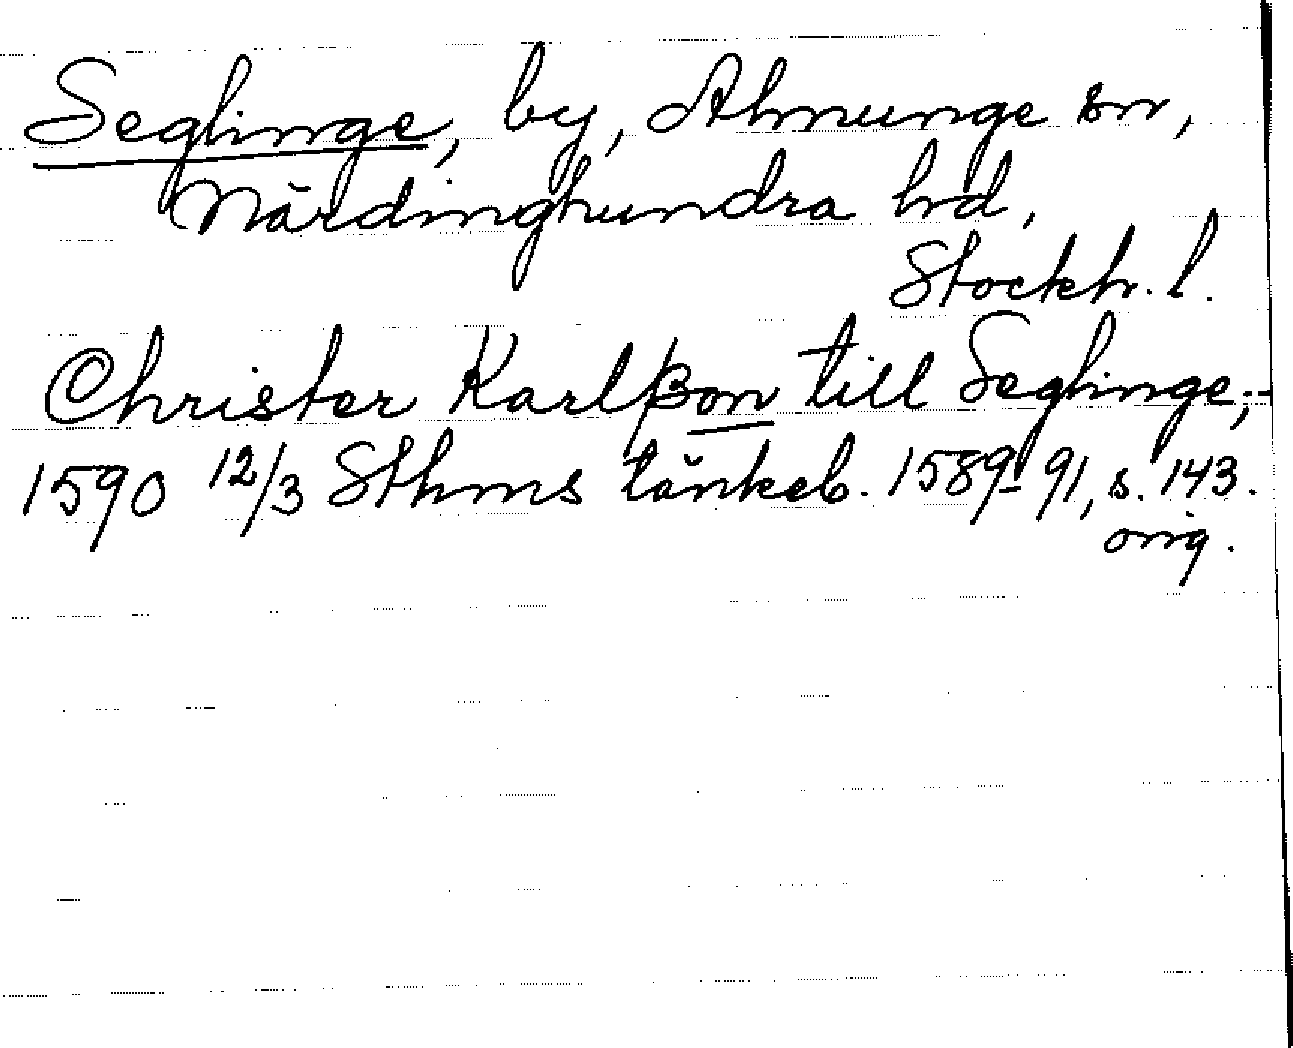 Seglinge, by, Almunge sn,
Närdinghundra hd,
Stockh. l.
Christer Karlßon till Seglinge;-
1590 12/3 Sthms tänkeb. 1589-91, s. 143.
orig.